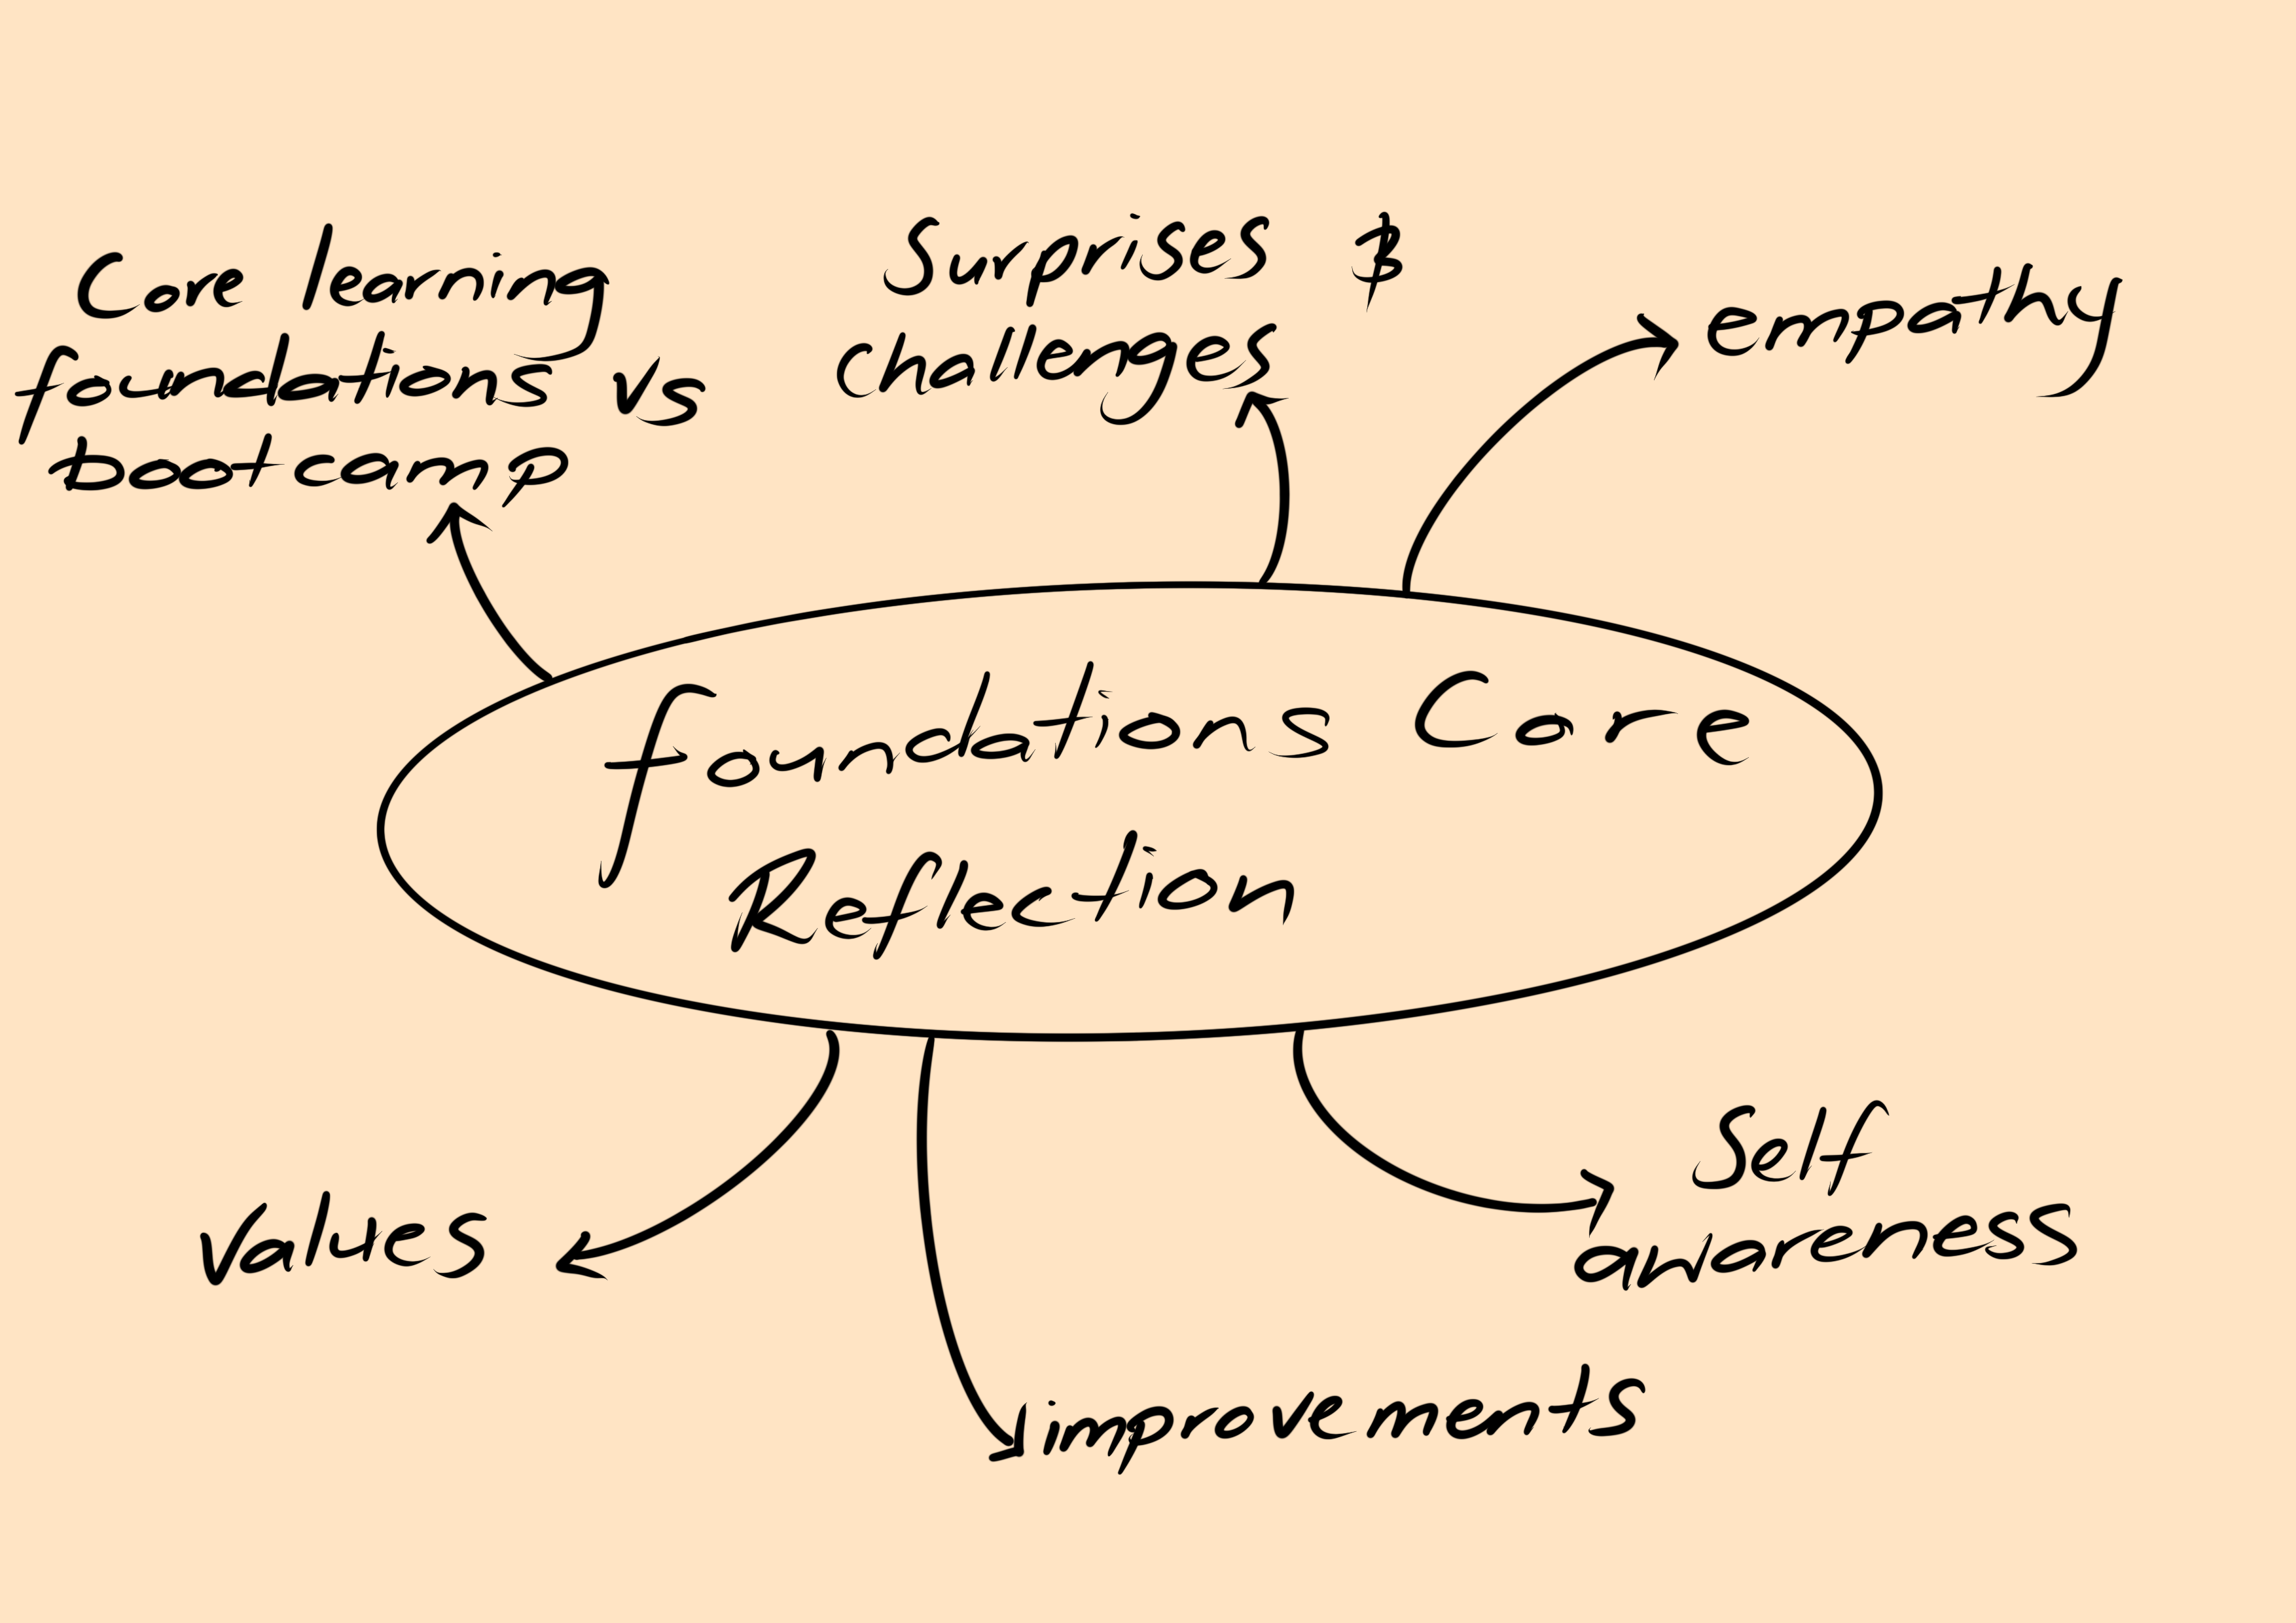 Core learning
foundations vs
bootcamp
Surprises &
challenges
empathy
foundations Core
Reflection
Values
improvements
Self
awareness